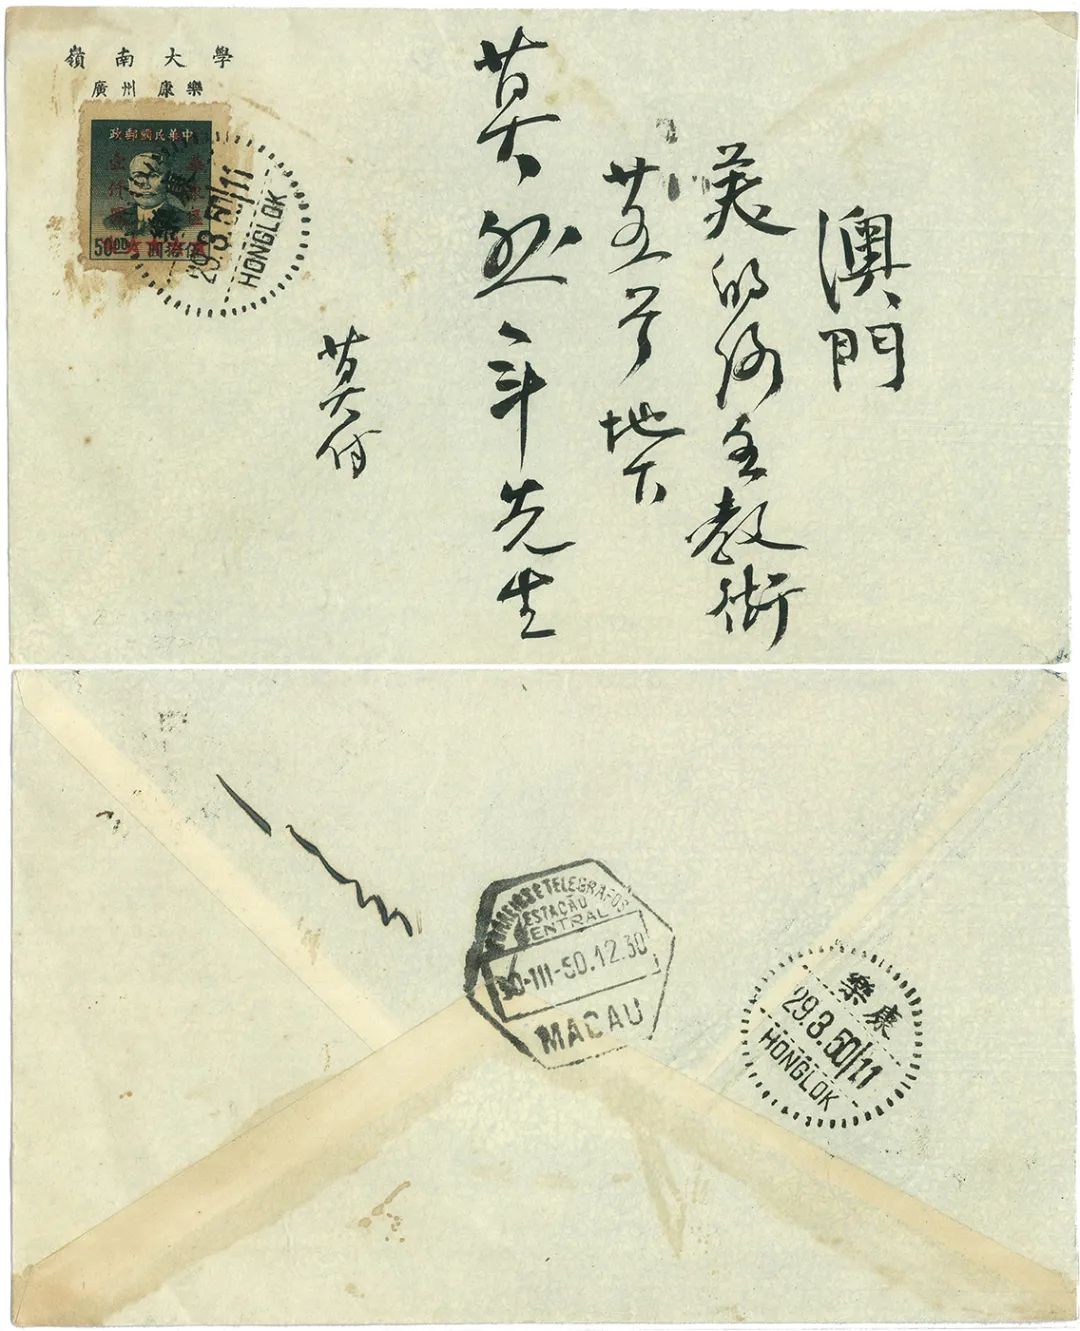 嶺南大學
廣州 康樂
中華民國郵政
50.00
伍拾圓
康樂
29.3.50/11
HONGLOK
澳門
美的路主教街
廿五号地下
莫 年先生
莫付
CORREIOS E TELEGRAFOS
ESTAÇÃO
CENTRAL
30-III-50.12.30
MACAU
康樂
29.3.50/11
HONGLOK